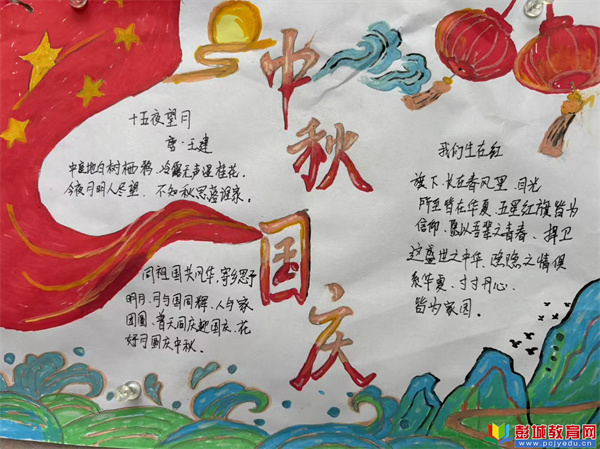 中秋
国庆
十五夜望月
唐·王建
中庭地白树栖鸦,冷露无声湿桂花。
今夜月明人尽望,不知秋思落谁家。
同祖国共风华,寄乡思于
明月,月与国同辉,人与家
团圆,普天同庆迎国庆,花
好月圆庆中秋。
我们生在红
旗下,长在春风里,目光
所至皆在华夏,五星红旗皆为
信仰,愿以吾辈之青春、捍卫
这盛世之中华,隐隐之情俱
系华夏,寸寸丹心,
皆为家国。
彭城教育网
www.pcjyedu.cn